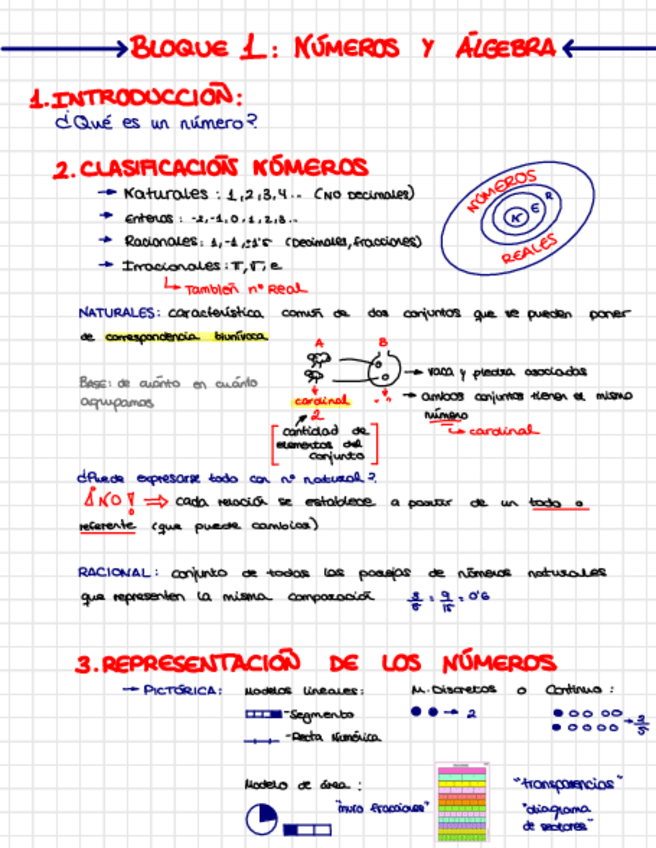 BLOQUE 1: NÚMEROS Y ÁLGEBRA
1. INTRODUCCIÓN:
¿Qué es un número?
2. CLASIFICACIÓN NÚMEROS
→ Naturales: 1,2,3,4... (NO Decimales)
→ Enteros: -2,-1,0,1,2,3...
→ Racionales: 1,-1, (Decimales, fracciones)
→ Irracionales: π, √, e
También nº Real
NÚMEROS
N E R
REALES
NATURALES: característica común de dos conjuntos que se pueden poner
de correspondencia biunívoca
A B
BASE: de cuánto en cuánto
agrupamos
→ vaca y piedra asociadas
→ ambos conjuntos tienen el mismo
número
cardinal
cardinal
2
cantidad de
elementos del
conjunto
¿Puede expresarse todo con nº natural?
¡NO! ⇒ cada relación se establece a partir de un todo o
referente (que puede cambiar)
RACIONAL: conjunto de todas las parejas de números naturales
que representen la misma comparación 3/5 = 9/15 = 0'6
3. REPRESENTACIÓN DE LOS NÚMEROS
→ PICTÓRICA: Modelos lineales: M. Discretos o Continuo:
- Segmento → 2 → 3/5
- Recta Numérica
Modelo de área:
"muro fracciones"
"transparencias"
"diagrama
de sectores"